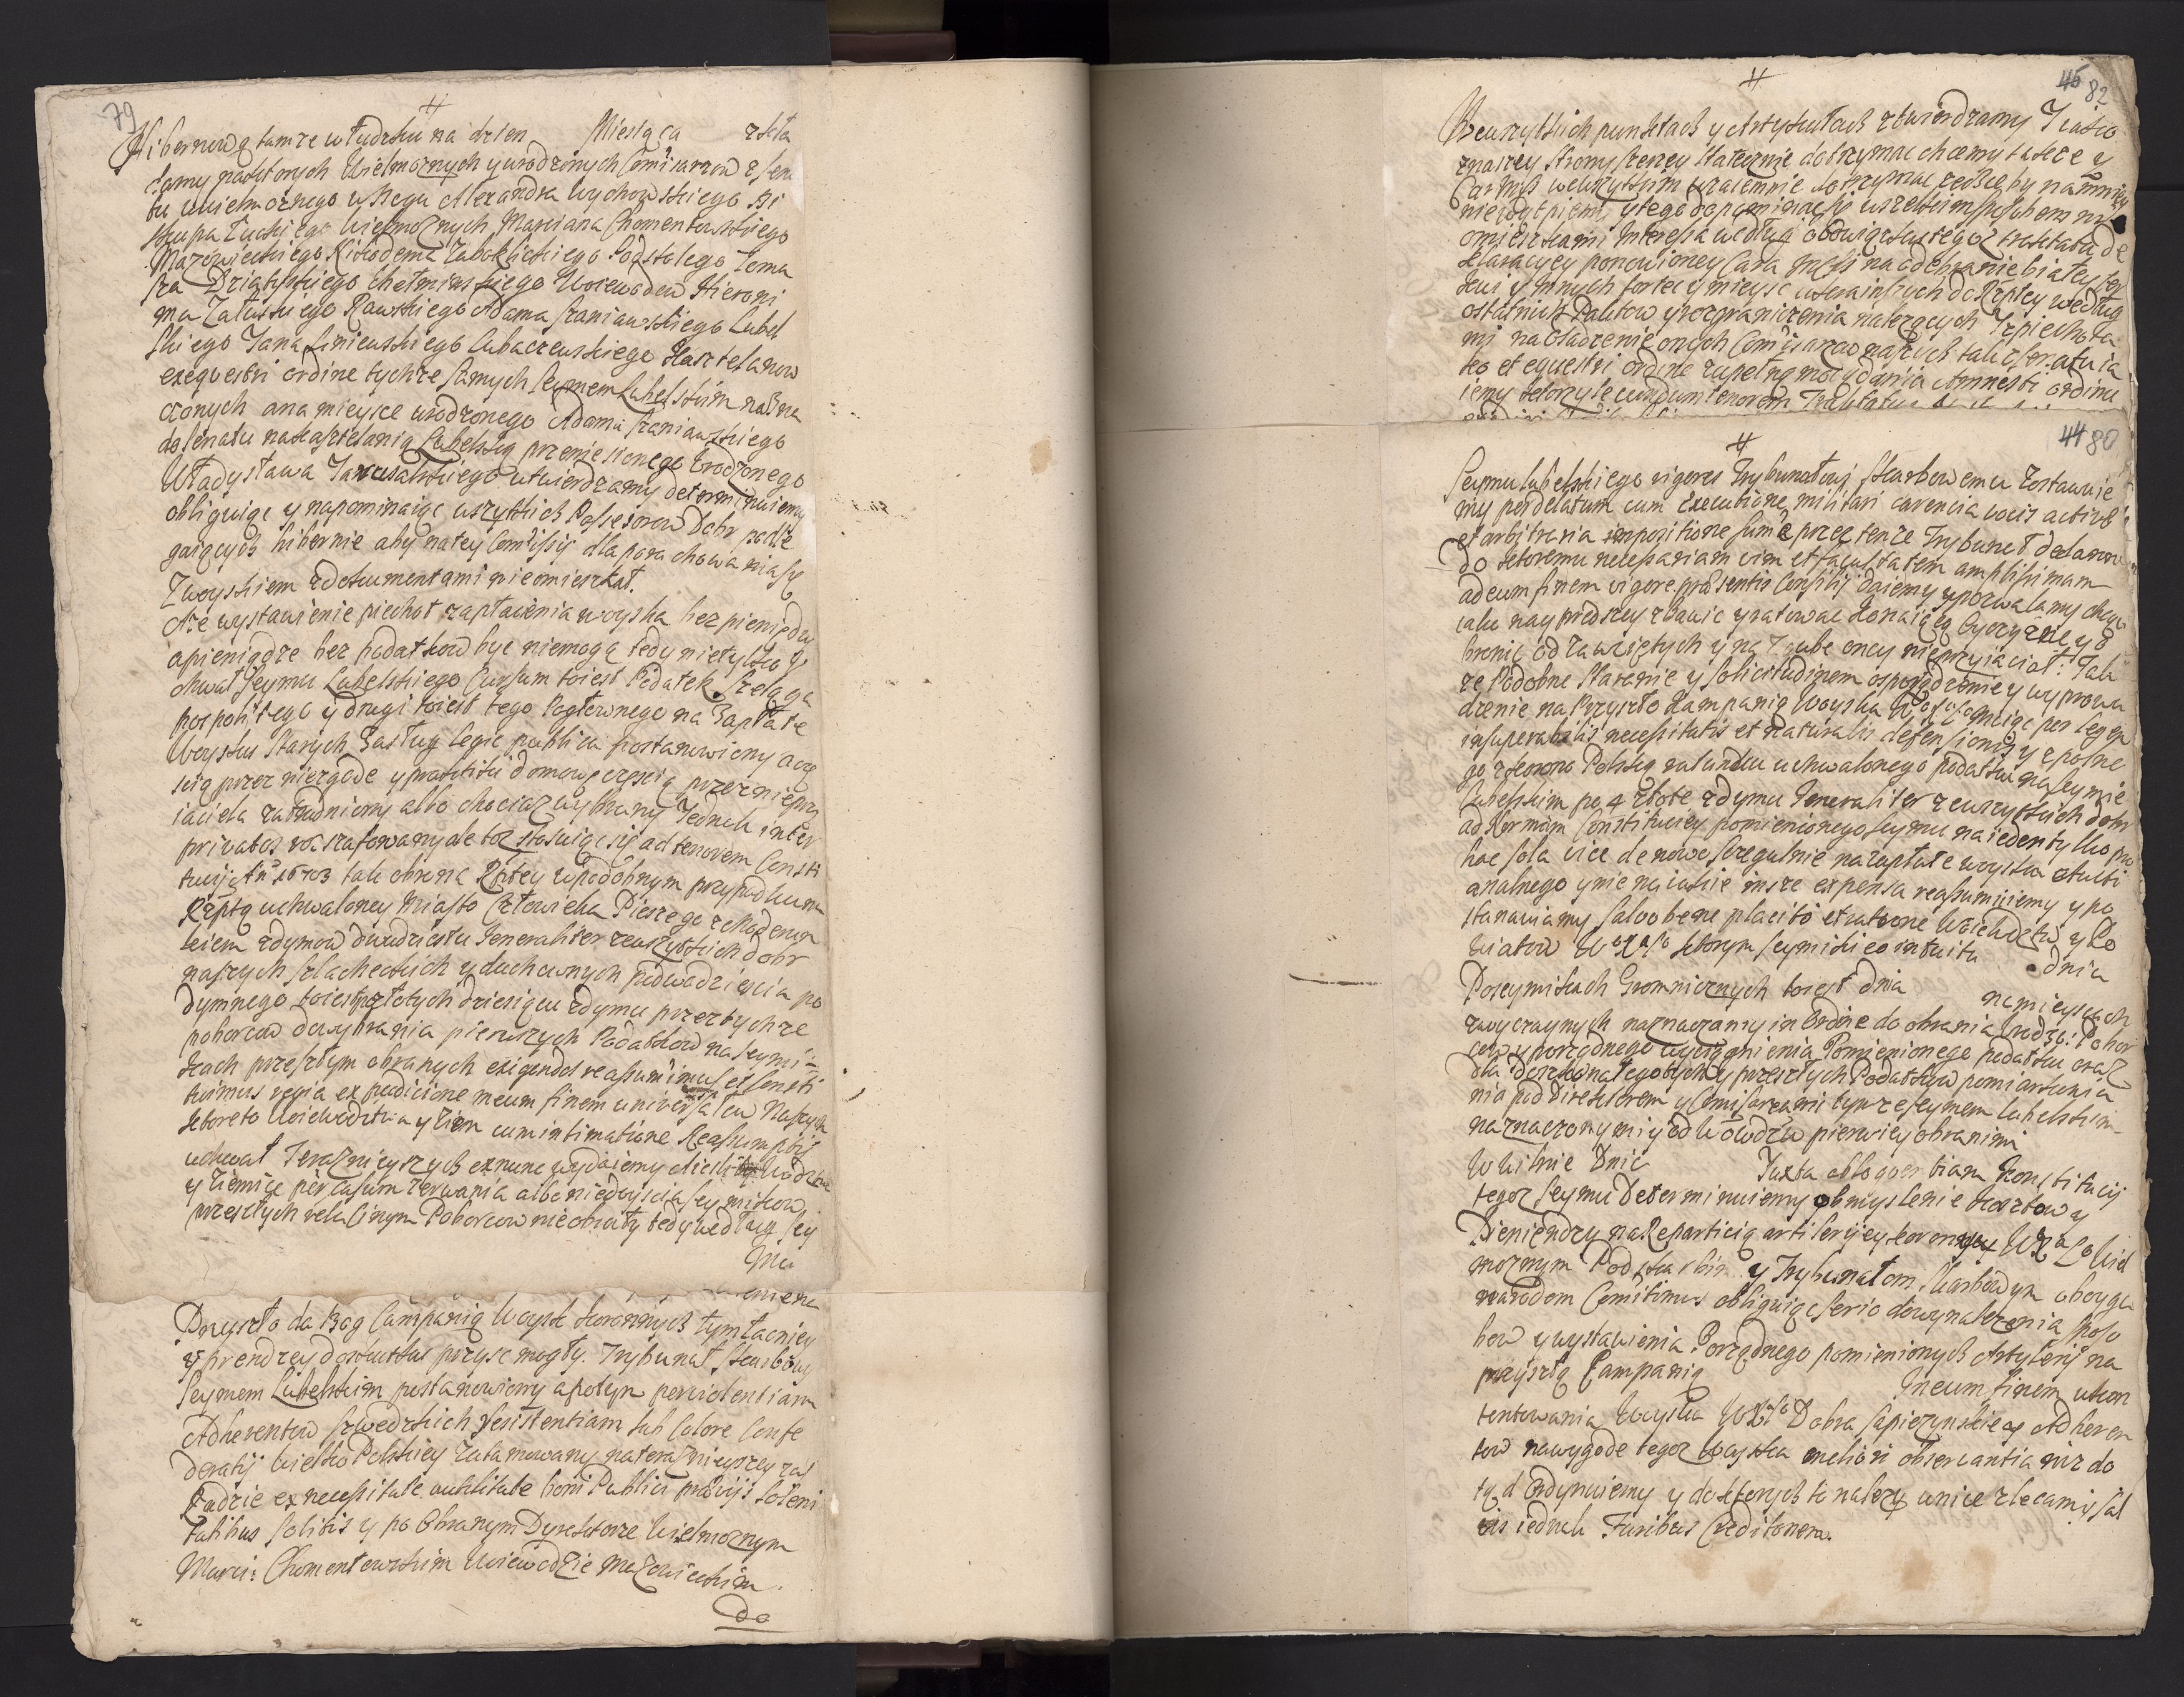 79
Hibernową tamże w Łudzku na dzien Miesiąca zseła
lamy przeszłorych Wielmoznych y urodzonych Comisarzow z Sena
tu wielmoznego w Bogu Alexandra Wychowskiego Bi
skupa Łuckiego Wielmoznych Marciana Chomentowskiego
Mazowieckiego Nikodema Zaboklickiego Podolskiego Toma
sza Działynskiego Chełminskiego Woiewodow Hieroni
ma Załuskiego Rawskiego Adama Sraniawskiego Lubel
skiego Jana Siniewskiego Lubaczewskiego Kasztelanow
ex equestri ordine tychże samych Seymem Lubelskim nazna
czonych a na mieysce urodzonego Adama Sraniawskiego
do senatu na Kasztelanią Lubelską przeniesionego Urodzonego
Władysława utwierdzamy determinuiemy
obliguiąc y napominaiąc wszytkich Possesorow Dobr podle
gaiących hibernie aby na tey Comissyi dla porachowania się
Z woyskiem z dokumentami nieomieszkał.
A że wystawienie piechot zapłacenia woyska bez pieniędzy
a pieniądze bez podatkow byc niemogą tedy nie tylko z
chwał Seymu Lubelskiego Cursum toiest Podatek Szelągu
pospolitego y drugi toiest tego Pogłownego na Zapłatę
Woysku Starych Zasług lege publica postanowiony aczę
scią przez niezgodę y domowe częscią przez nieprzy
iaciela zatrudniony albo chociaz wybrany Jednak inter
privatos rozszafowany ale toz stosuiąc się ad tenorem Consti
tucyi An: 1673 tak obrona Rptey w podobnym przypadku na
Rzptą uchwaloney Miasto Człowieka Pieszego z Moderun
kiem z dymow dwudziestu generaliter ze wszystkich dobr
naszych szlacheckich y duchownych po dwadziescia po
dymnego toiest po złotych dziesięciu z dymu przez tychże
poborcow do wybrania pierwszych Podatkow na Seymi
kach przeszłym obranych exigendos reassumimus et Consti
tuimus regia expedicione in eum finem universałow Naszych
ktore to Woiewodztwa y Ziem cum intimatione Reassumptis
uchwał Teraznieyszych ex nunc wydaiemy A iesliby Wodztwa
y Ziemie per casum zerwania albo niedoyscia Seymikow
przeszłych relatinym Poborcow nie obrały tedy według Sey
Mu
Przyszłą da Bog Campanią Woysk koronnych tym łacniey
y prendzey do skutku przysc mogły. Trybunał Skarbowy
Seymem Lubelskim postanowiony a potym per violentiam
Adherentow Szwedzkich resistentiam sub Colore Confe
deratij Wielko Polskiey zatamowany na teraznieyszey zas
Radzie ex necessitate et utilitate boni Publici praevijs Soleni
tatibus solitis y po Obranym Dyrektorze Wielmoznym
Marci: Chomentowskim Woiewodzie Mazowieckim.
do
45 82
We wszytkich punktach y Artykułach ztwierdzamy I iako
z naszey strony szerzey statecznie dotrzymac chcemy tak ze y
Car Mosc we wszytkim wzaiemnie dotrzymac zechce by namniey
nie wątpiemy y tego dopominac się wszelkim sposobem nie
omieszkami Interessa według obowiązku tegoz traktatu de
klaracyey ponowioney Cara Mosci na odebranie białey Cer
kwi y innych fortec y mieysc ukrainskich do Rzptey według
ostatnich Paktow y rozgraniczenia należących Y z piechota
mi na osadzenie onych Comisarzow naszych tak z senatu ia
ko et equestri ordine zupełną moc y dania Amnesti ordinu
iemy ktorzy secundum tenorem Traktatu
44 80
Seymu lubelskiego vigores Trybunałowi Skarbowemu zostawuie
my per delatum cum executione militari carencia vocis activae
et arbitraria impositione sumae przez tenze Trybunał deklarow
do ktoremu necessariam vim et facultatem amplissimam
ad eum finem vigore praesentis Consilij daiemy y pozwalamy chcąc
iako nayprędszey zbawic y ratowac konaiącą Oyczyznę y o
bronic od zawziętych y na Zgube oney nieprzyiaciół. Tak
ze Podobne Staranie y Solicitudinem o sporządzenie y wyprowa
dzenie na Przyszłą Kampanią Woyska W.X.L. maiąc per legem
insuperabilis necessitatis et naturalis defensionis y spolne
go z koroną Polską ratunku uchwalonego podatku na Seymie
Lubelskim po 4 złote z dymu Generaliter ze wszytkich dobr
ad Normam Constitucyey pomienionego Seymu na ieden tylko raz
hac sola vice de novo Szegulnie na zapłatę woyska Aktu
analnego y nie na iakie insze expensa reassumuiemy y po
stanawiamy salvo bene placito et ratione Woiewdztw y Po
wiatow W.X.L. ktorym seymiki eo intuitu dnia
Po seymikach Gromnicznych toiest dnia na mieyscach
zwyczaynych naznaczamy in Ordine do obrania Urodzo: Pobor
cow y porządnego wyciągnienia Pomienionego podatku oraz
dla doskonałego tych y przeszłych Podatkow pomiarkowa
nia pod Direktorem y Comisarzami tymze seymem lubelskim
naznaczonymi y od Wodztw pierwiey obranimi
W Wilnie Dnia Juxta obloquentiam Konstitucij
tegoz seymu Determinuiemy obmyslenie kosztow y
Pieniendzy na Reparticią artileriyey koronney y W.X.L. Wiel
moznym Podskarbim y Trybunałom Skarbowym oboyga
narodom Comitimus obliguiąc serio do wynalezenia sposo
bow y wystawienia Porządnego pomienionych Artyleryi na
przyszłą Campanią In eum finem ukon
tentowania Woyska W.X.L. Dobra Sapiezynskie y Adheren
tow na wygodę tegoz Woyska meliori observantia niz do
tąd Ordynuiemy y do ktorych to nalezy unice zlecamy sal
vis iednak Juribus Creditorem.